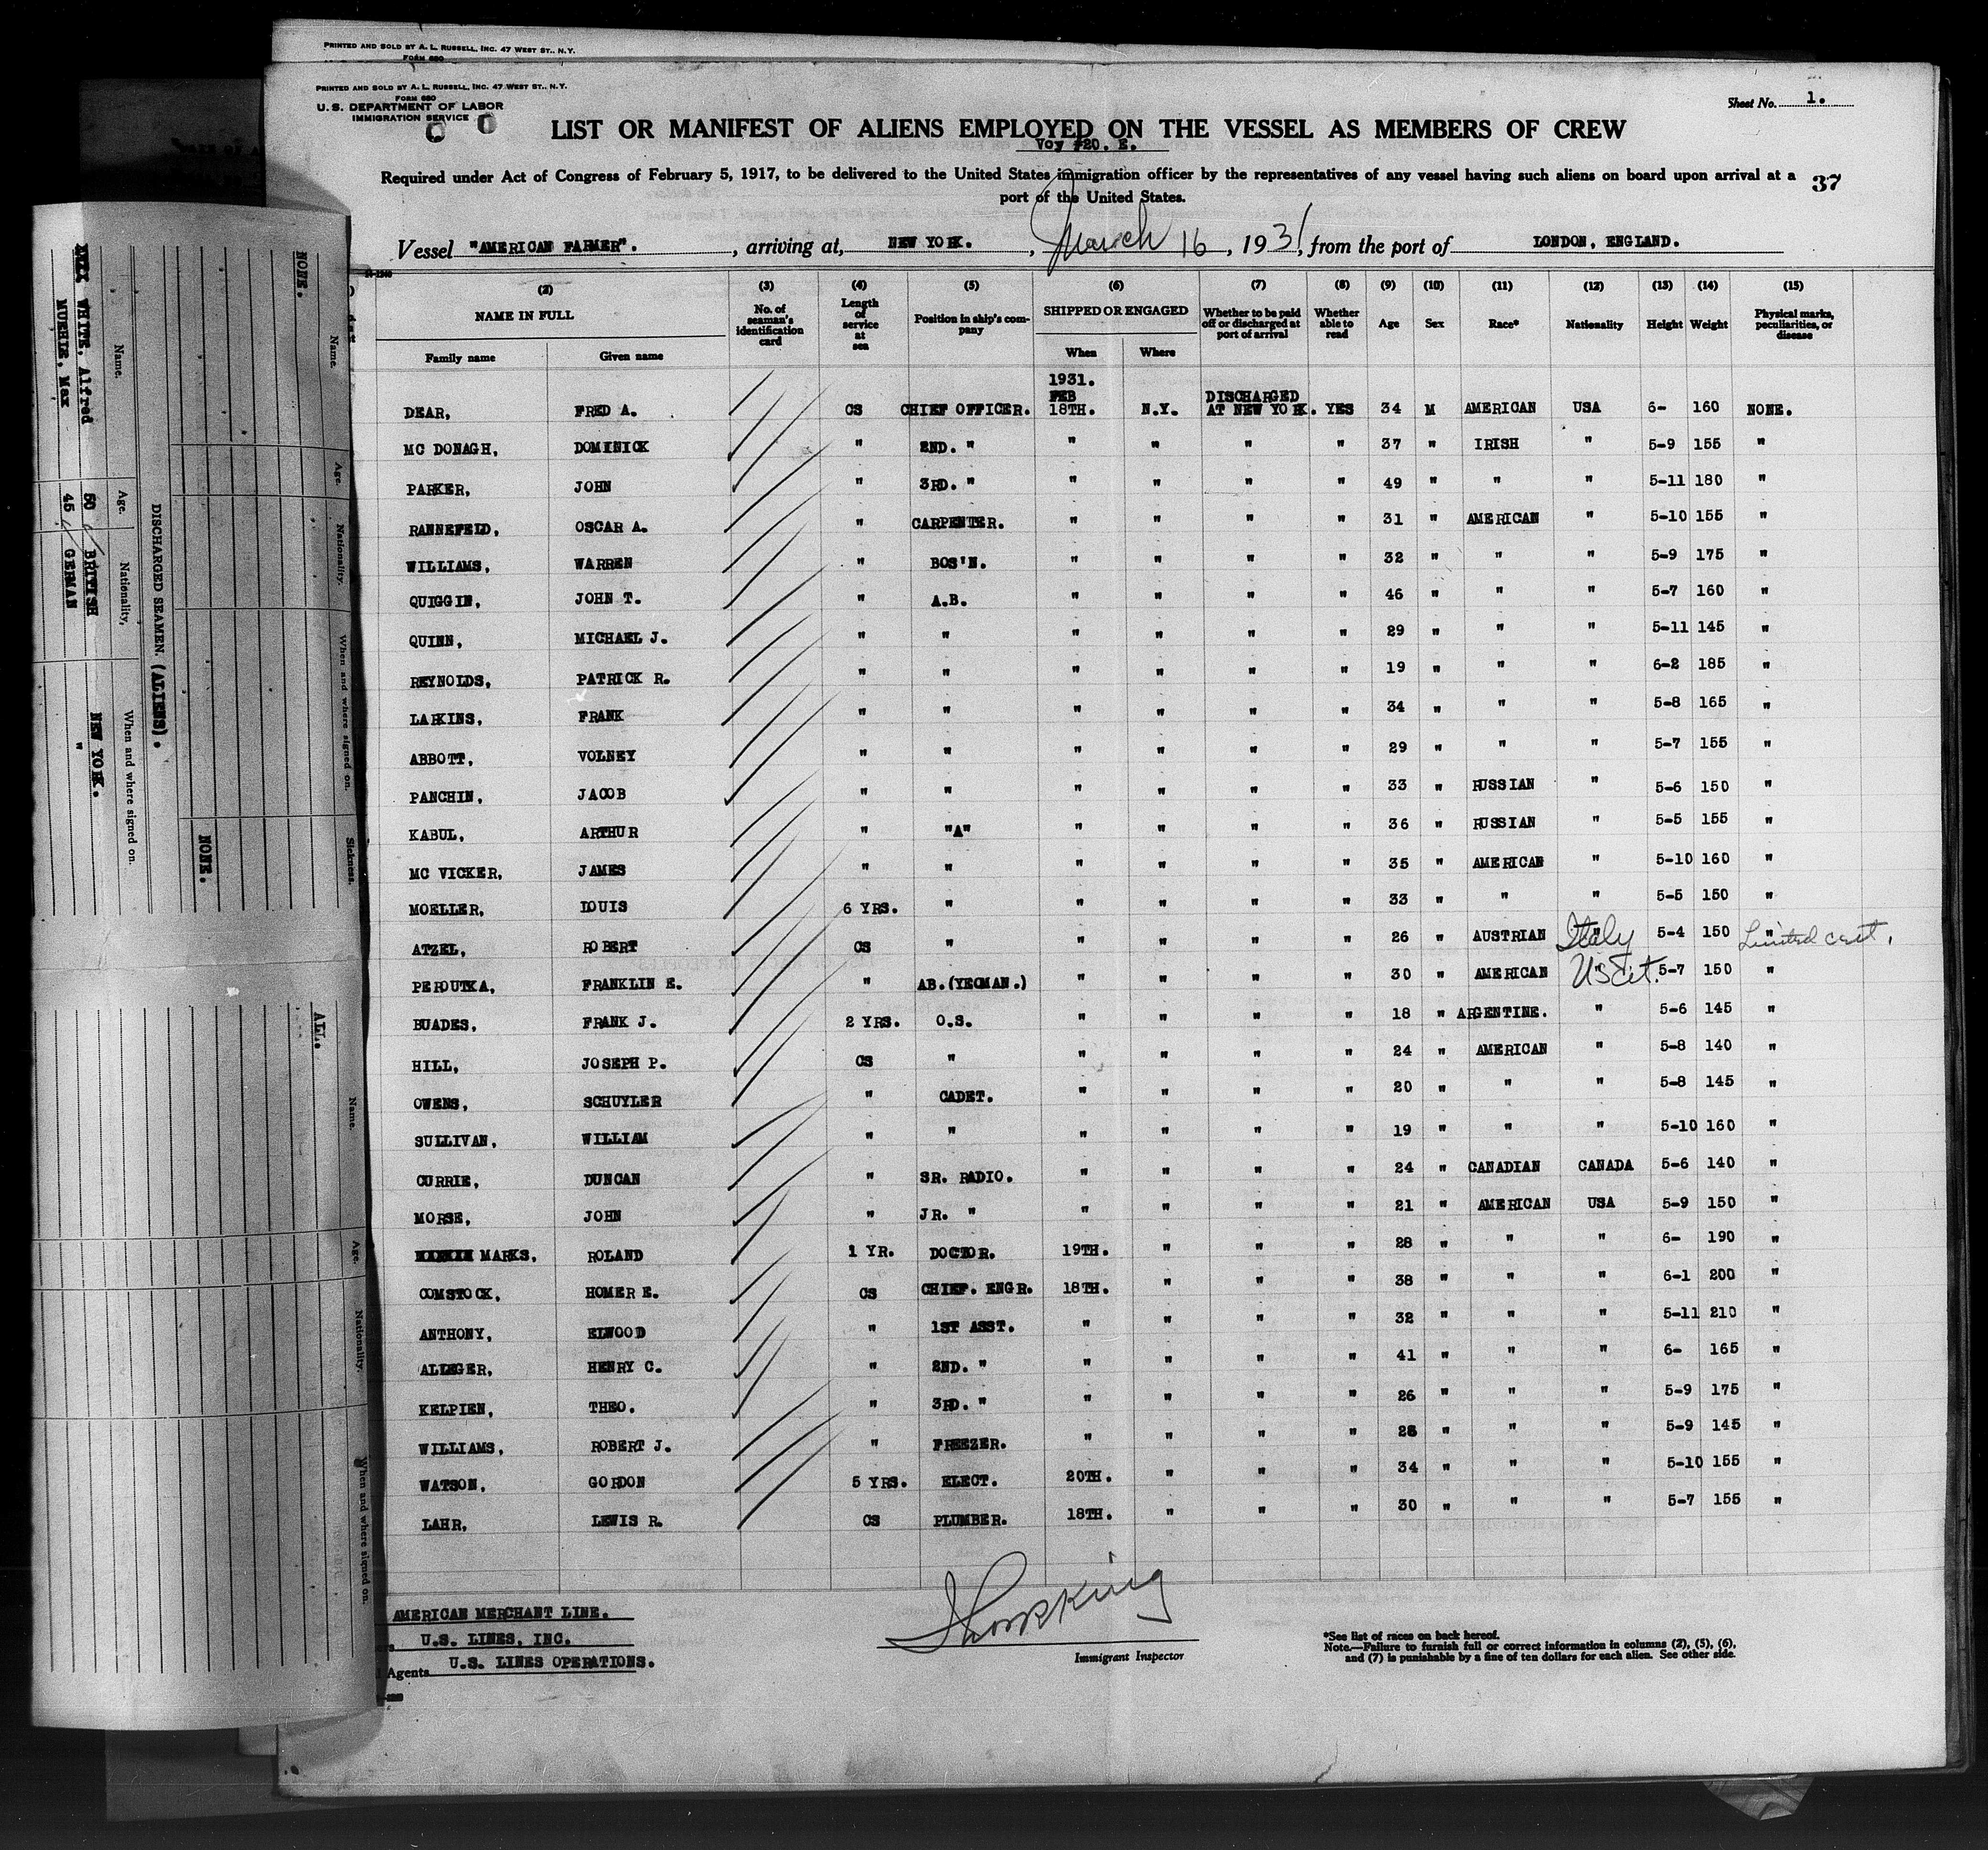 PRINTED AND SOLD BY A. L. RUSSELL, INC. 47 WEST ST., N.Y.
FORM 680
PRINTED AND SOLD BY A. L. RUSSELL, INC. 47 WEST ST., N.Y.
FORM 680
U.S. DEPARTMENT OF LABOR
IMMIGRATION SERVICE
Sheet No. 1.
LIST OR MANIFEST OF ALIENS EMPLOYED ON THE VESSEL AS MEMBERS OF CREW
Voy #20. E.
Required under Act of Congress of February 5, 1917, to be delivered to the United States immigration officer by the representatives of any vessel having such aliens on board upon arrival at a
port of the United States.
37
Vessel "AMERICAN FARMER"., arriving at, NEW YORK., March 16, 1931, from the port of LONDON, ENGLAND.
(2) (3) (4) (5) (6) (7) (8) (9) (10) (11) (12) (13) (14) (15)
NAME IN FULL No. of seaman's identification card Length of service at sea Position in ship's company SHIPPED OR ENGAGED Whether to be paid off or discharged at port of arrival Whether able to read Age Sex Race* Nationality Height Weight Physical marks, peculiarities, or disease
Family name Given name When Where
1931.
FEB DISCHARGED
DEAR, FRED A. CS CHIEF OFFICER. 18TH. N.Y. AT NEW YORK. YES 34 M AMERICAN USA 6- 160 NONE.
MC DONAGH, DOMINICK " 2ND. " " " " " 37 " IRISH " 5-9 155 "
PARKER, JOHN " 3RD. " " " " " 49 " " " 5-11 180 "
RANNEFELD, OSCAR A. " CARPENTER. " " " " 31 " AMERICAN " 5-10 155 "
WILLIAMS, WARREN " BOS'N. " " " " 32 " " " 5-9 175 "
QUIGGIN, JOHN T. " A.B. " " " " 46 " " " 5-7 160 "
QUINN, MICHAEL J. " " " " " " 29 " " " 5-11 145 "
REYNOLDS, PATRICK R. " " " " " " 19 " " " 6-2 185 "
LARKINS, FRANK " " " " " " 34 " " " 5-8 165 "
ABBOTT, VOLNEY " " " " " " 29 " " " 5-7 155 "
PANCHIN, JACOB " " " " " " 33 " RUSSIAN " 5-6 150 "
KABUL, ARTHUR " "A" " " " " 36 " RUSSIAN " 5-5 155 "
MC VICKER, JAMES " " " " " " 35 " AMERICAN " 5-10 160 "
MOELLER, LOUIS 6 YRS. " " " " " 33 " " " 5-5 150 "
ATZEL, ROBERT CS " " " " " 26 " AUSTRIAN " Italy 5-4 150 " Limited cert.
PEROUTKA, FRANKLIN E. " AB.(YEOMAN.) " " " " 30 " AMERICAN " US Cit. 5-7 150 "
BUADES, FRANK J. 2 YRS. O.S. " " " " 18 " ARGENTINE. " 5-6 145 "
HILL, JOSEPH P. CS " " " " " 24 " AMERICAN " 5-8 140 "
OWENS, SCHUYLER " CADET. " " " " 20 " " " 5-8 145 "
SULLIVAN, WILLIAM " " " " " " 19 " " " 5-10 160 "
CURRIE, DUNCAN " SR. RADIO. " " " " 24 " CANADIAN CANADA 5-6 140 "
MORSE, JOHN " JR. " " " " " 21 " AMERICAN USA 5-9 150 "
MARKS, ROLAND 1 YR. DOCTOR. 19TH. " " " 28 " " " 6- 190 "
COMSTOCK, HOMER E. CS CHIEF. ENGR. 18TH. " " " 38 " " " 6-1 200 "
ANTHONY, ELWOOD " 1ST ASST. " " " " 32 " " " 5-11 210 "
ALLEGER, HENRY C. " 2ND. " " " " " 41 " " " 6- 165 "
KELPIEN, THEO. " 3RD. " " " " " 26 " " " 5-9 175 "
WILLIAMS, ROBERT J. " FREEZER. " " " " 28 " " " 5-9 145 "
WATSON, GORDON 5 YRS. ELECT. 20TH. " " " 34 " " " 5-10 155 "
LAHR, LEWIS R. CS PLUMBER. 18TH. " " " 30 " " " 5-7 155 "
AMERICAN MERCHANT LINE.
U.S. LINES, INC.
Agents U.S. LINES OPERATIONS.
Immigrant Inspector
*See list of races on back hereof.
Note.—Failure to furnish full or correct information in columns (2), (5), (6),
and (7) is punishable by a fine of ten dollars for each alien. See other side.
Name. Age. Nationality. When and where signed on. Sickness.
NONE. NONE.
DISCHARGED SEAMEN. (ALIENS).
Name. Age. Nationality, When and where signed on.
WHITE, Alfred 50 BRITISH NEW YORK.
MURRIE, Max 45 GERMAN "
Name. Age. Nationality. When and where signed on.
ALL.